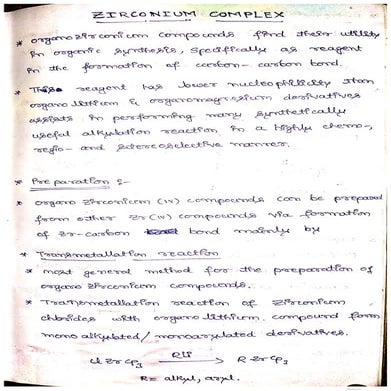 ZIRCONIUM COMPLEX
* organozirconium compounds find their utility
in organic synthesis, specifically as reagent
in the formation of carbon-carbon bond.
* These reagent has lower nucleophilicity than
organolithium & organomagnesium derivatives
assists in performing many synthetically
useful alkylation reaction in a highly chemo-,
regio- and stereoselective manner.
* Preparation :-
* organo zirconium (IV) compounds can be prepared
from other Zr(IV) compounds via formation
of Zr-carbon bond mainly by
* Transmetallation reaction
* most general method for the preparation of
organo zirconium compounds.
* Transmetallation reaction of zirconium
chlorides with organolithium compound form
mono alkylated/monoarylated derivatives.
ClZrCp3 RLi → R-ZrCp3
R= alkyl, aryl.